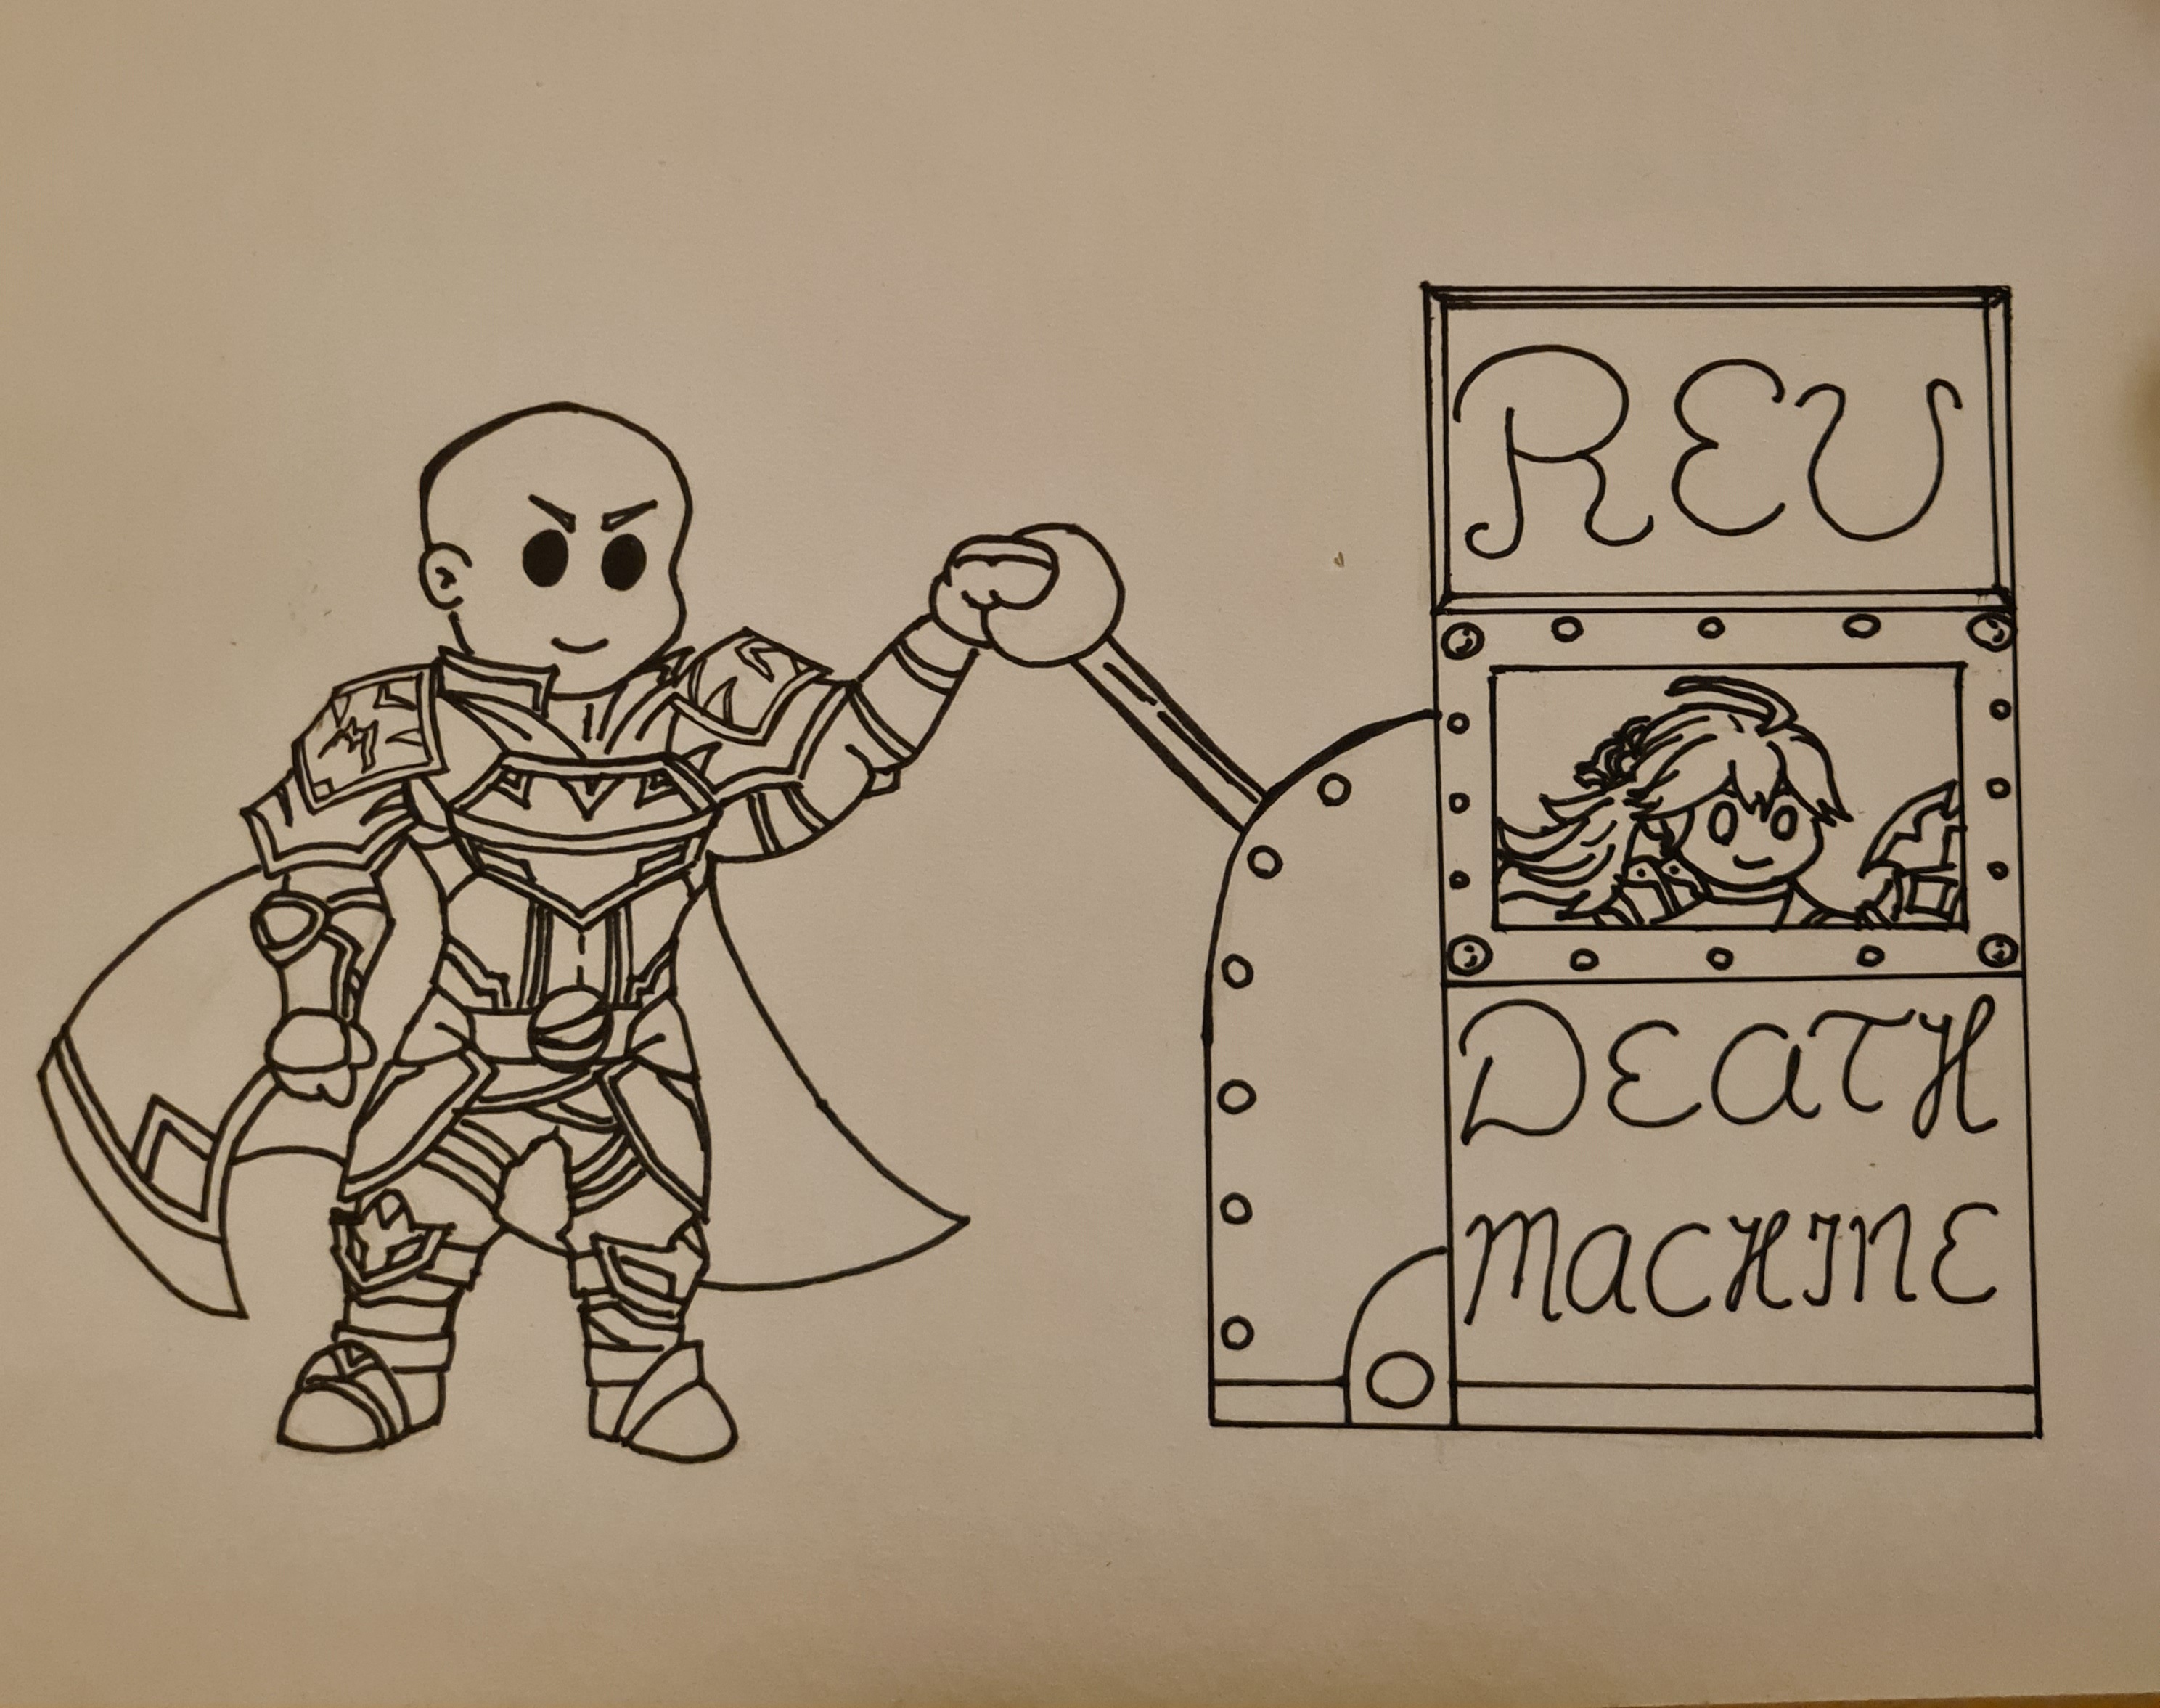 REV
DEATH
MACHINE